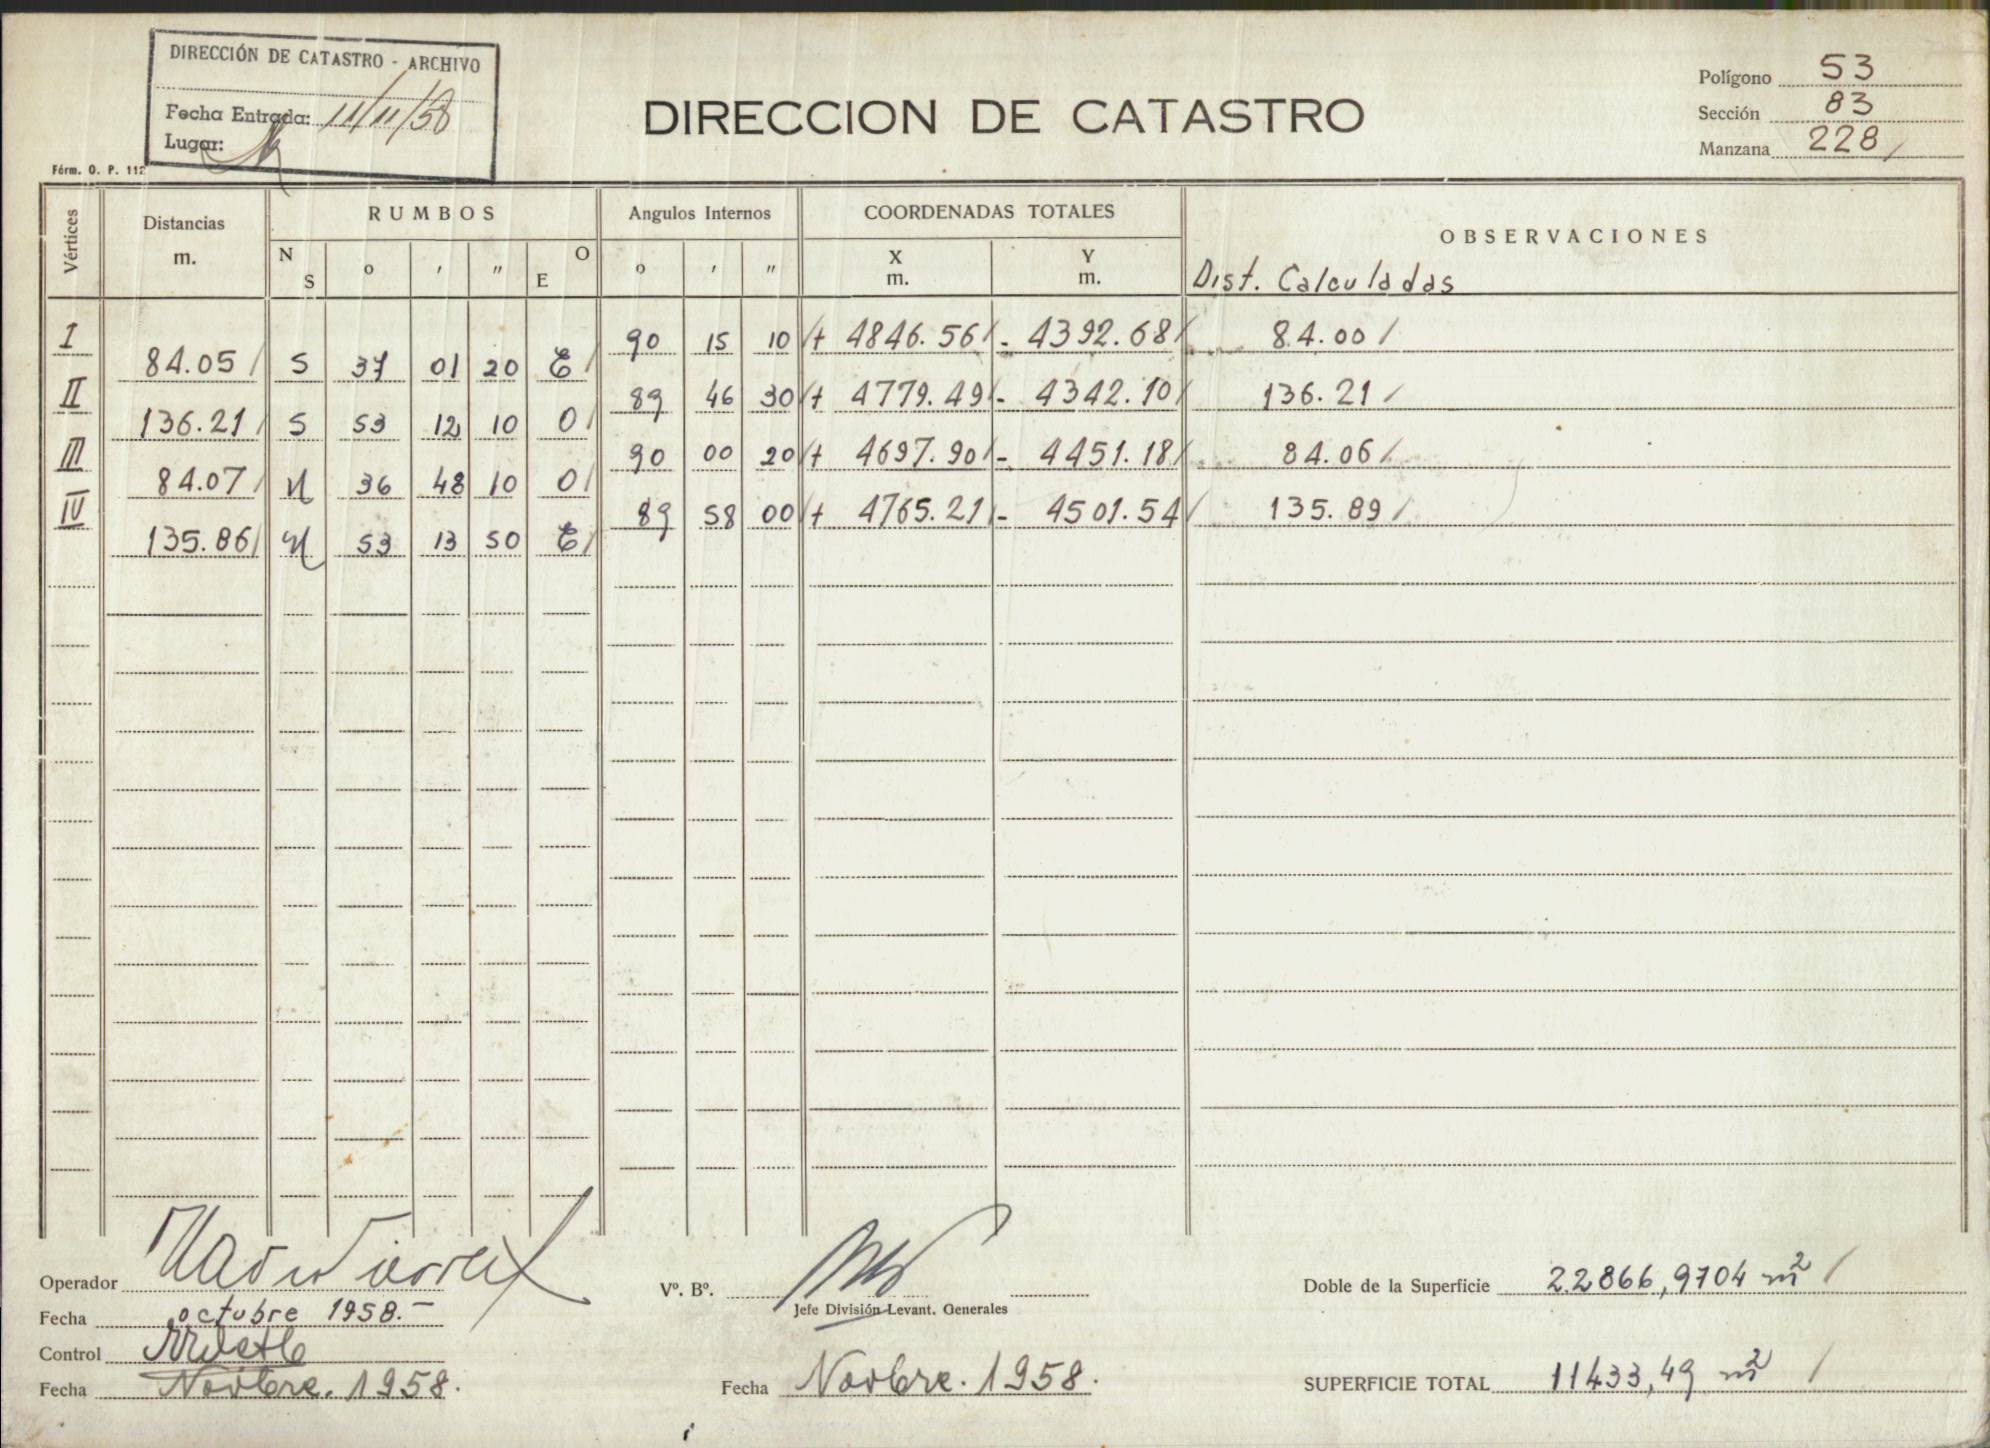 DIRECCIÓN DE CATASTRO - ARCHIVO
Fecha Entrada: 11/11/58
Lugar:
Fórm. O. P. 112
DIRECCION DE CATASTRO
Polígono 53
Sección 83
Manzana 228
Vértices
Distancias m.
RUMBOS
N S o ' " O E
Angulos Internos
o ' "
COORDENADAS TOTALES
X m. Y m.
OBSERVACIONES
Dist. Calculadas
I 90 15 10 + 4846.56 - 4392.68 84.00
84.05 S 37 01 20 E
II 89 46 30 + 4779.49 - 4342.10 136.21
136.21 S 53 12 10 O
III 90 00 20 + 4697.90 - 4451.18 84.06
84.07 N 36 48 10 O
IV 89 58 00 + 4765.21 - 4501.54 135.89
135.86 N 53 13 50 E
Operador
Fecha octubre 1958.-
Control
Fecha Novbre. 1958.
Vº. Bº.
Jefe División Levant. Generales
Fecha Novbre. 1958.
Doble de la Superficie 22866,9704 m²
SUPERFICIE TOTAL 11433,49 m²